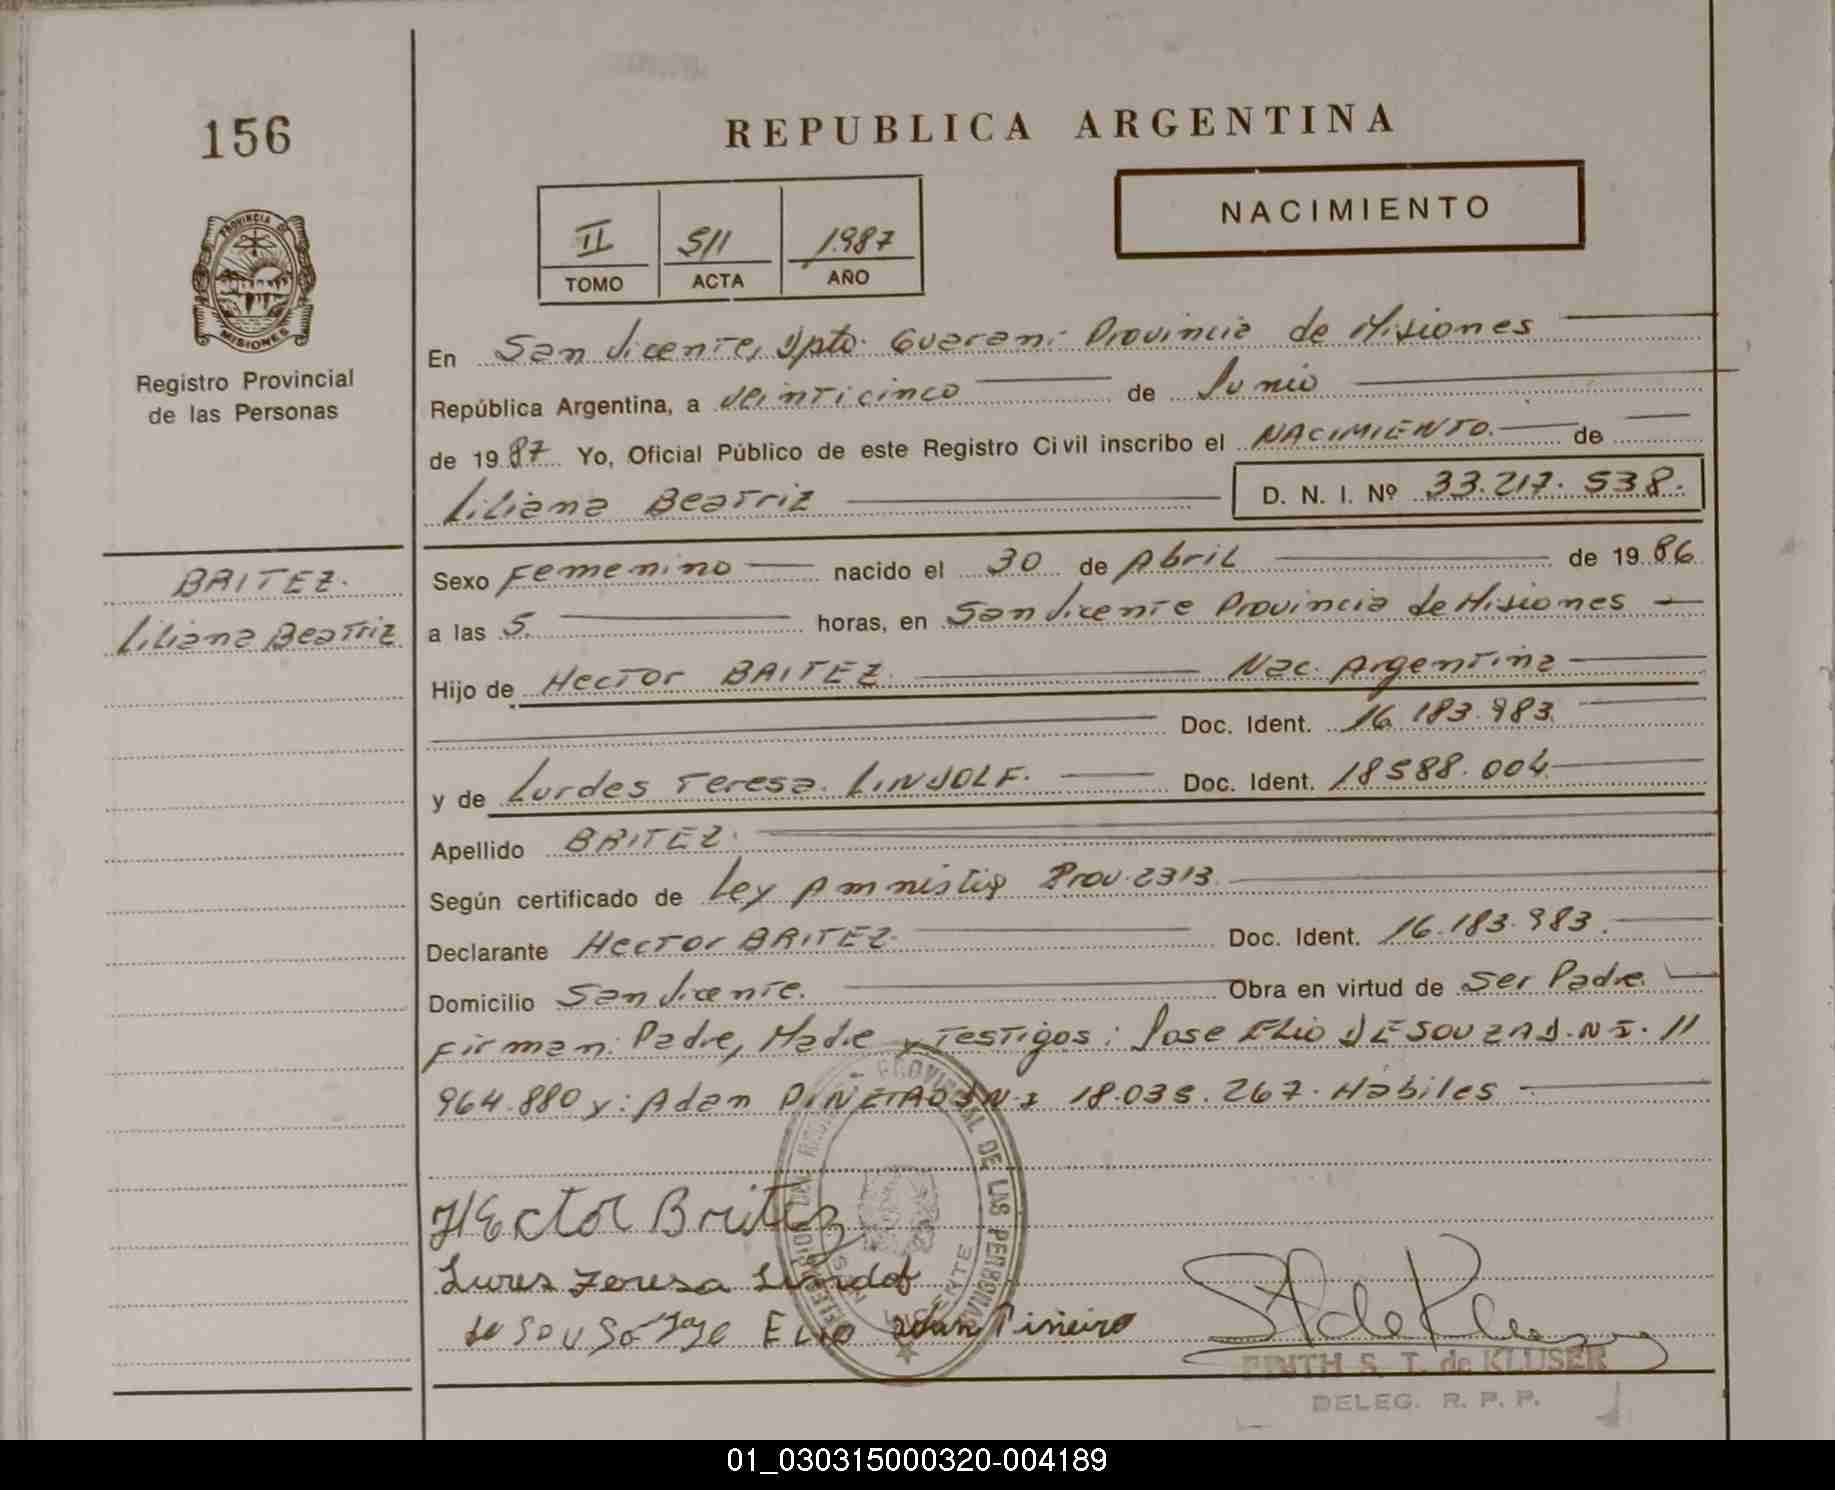 156
REPUBLICA ARGENTINA
PROVINCIA DE
MISIONES
Registro Provincial
de las Personas
II 511 1987
TOMO ACTA AÑO
NACIMIENTO
En San Vicente, Dpto. Guarani Provincia de Misiones
República Argentina, a veinticinco de Junio
de 1987 Yo, Oficial Público de este Registro Civil inscribo el NACIMIENTO. de
Liliana Beatriz D. N. I. Nº 33.217.538.
BRITEZ.
Liliana Beatriz
Sexo Femenino nacido el 30 de Abril de 1986
a las 5. horas, en San Vicente Provincia de Misiones
Hijo de Hector BRITEZ. Nac. Argentina
Doc. Ident. 16.183.983
y de Lurdes Teresa LINDOLF. Doc. Ident. 18588.004
Apellido BRITEZ.
Según certificado de Ley Amnistia Prov. 2313.
Declarante Hector BRITEZ. Doc. Ident. 16.183.983.
Domicilio San Vicente. Obra en virtud de Ser Padre.
Firman: Padre, Madre y Testigos: Jose Elio DE SOUZA D.N.I. 11
964.880 y: Adan PIÑEIRO D.N.I 18.035.267. Habiles
Hector Britez
Lures Teresa Lindof
de Souso Jose Elio Adan Piñeiro
PROVINCIAL DE LAS PERSONAS
VICENTE
EDITH S. T. de KLUSER
DELEG. R. P. P.
01_030315000320-004189